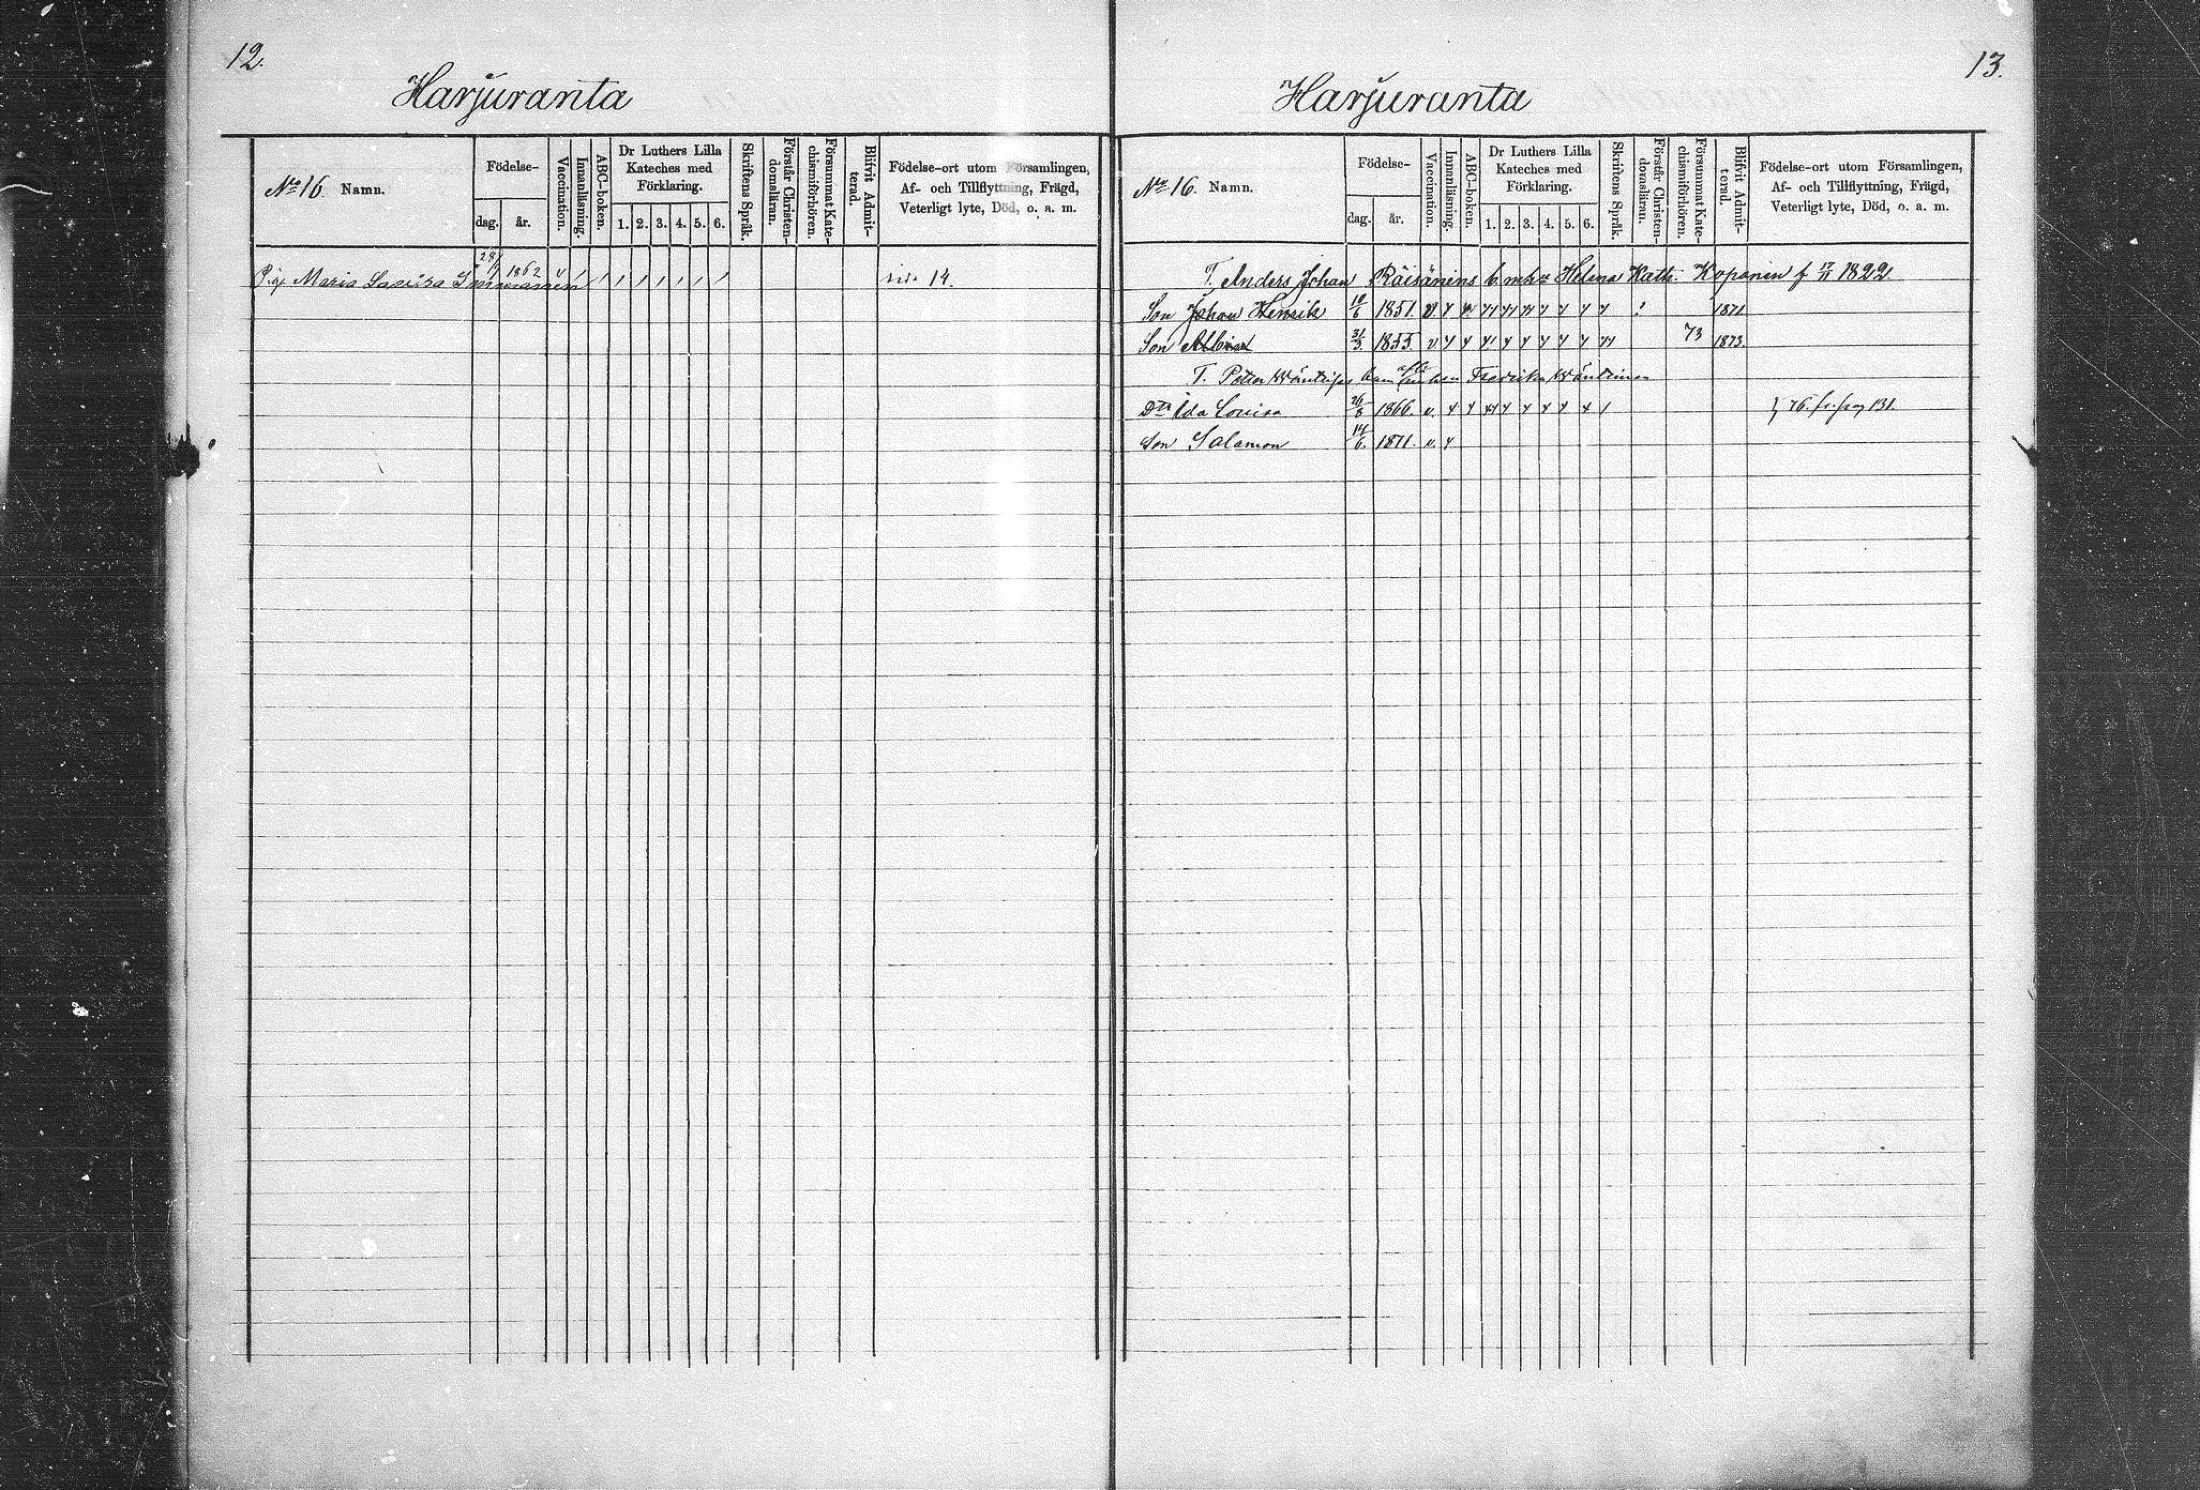 12.
Harjuranta
No 16. Namn.
Födelse-
dag.
år.
Vaccination.
Innanläsning.
ABC-boken.
Dr Luthers Lilla
Kateches med
Förklaring.
1. 2. 3. 4. 5. 6.
Skriftens Språk.
Förstår Christen-
domsläran.
Försummat Kate-
chismiförhören.
Blifvit Admit-
terad.
Födelse-ort utom Församlingen,
Af- och Tillflyttning, Frägd,
Veterligt lyte, Död, o. a. m.
Pig. Maria Lovisa 1862 v 14.
13.
Harjuranta
No 16. Namn.
Födelse-
dag.
år.
Vaccination.
Innanläsning.
ABC-boken.
Dr Luthers Lilla
Kateches med
Förklaring.
1. 2. 3. 4. 5. 6.
Skriftens Språk.
Förstår Christen-
domsläran.
Försummat Kate-
chismiförhören.
Blifvit Admit-
terad.
Födelse-ort utom Församlingen,
Af- och Tillflyttning, Frägd,
Veterligt lyte, Död, o. a. m.
T. Anders Johan Räisänens Helena Kath. Koponen f 17/11 1822
Son Johan Henrik 10/6 1851 1871
Son Albin 31/3 1855 73 1873.
T. Petter Fredrika
Dtr Ida Lovisa 26/8 1866 76. fr. pag 131.
Son Salamon 14/6. 1871. v.